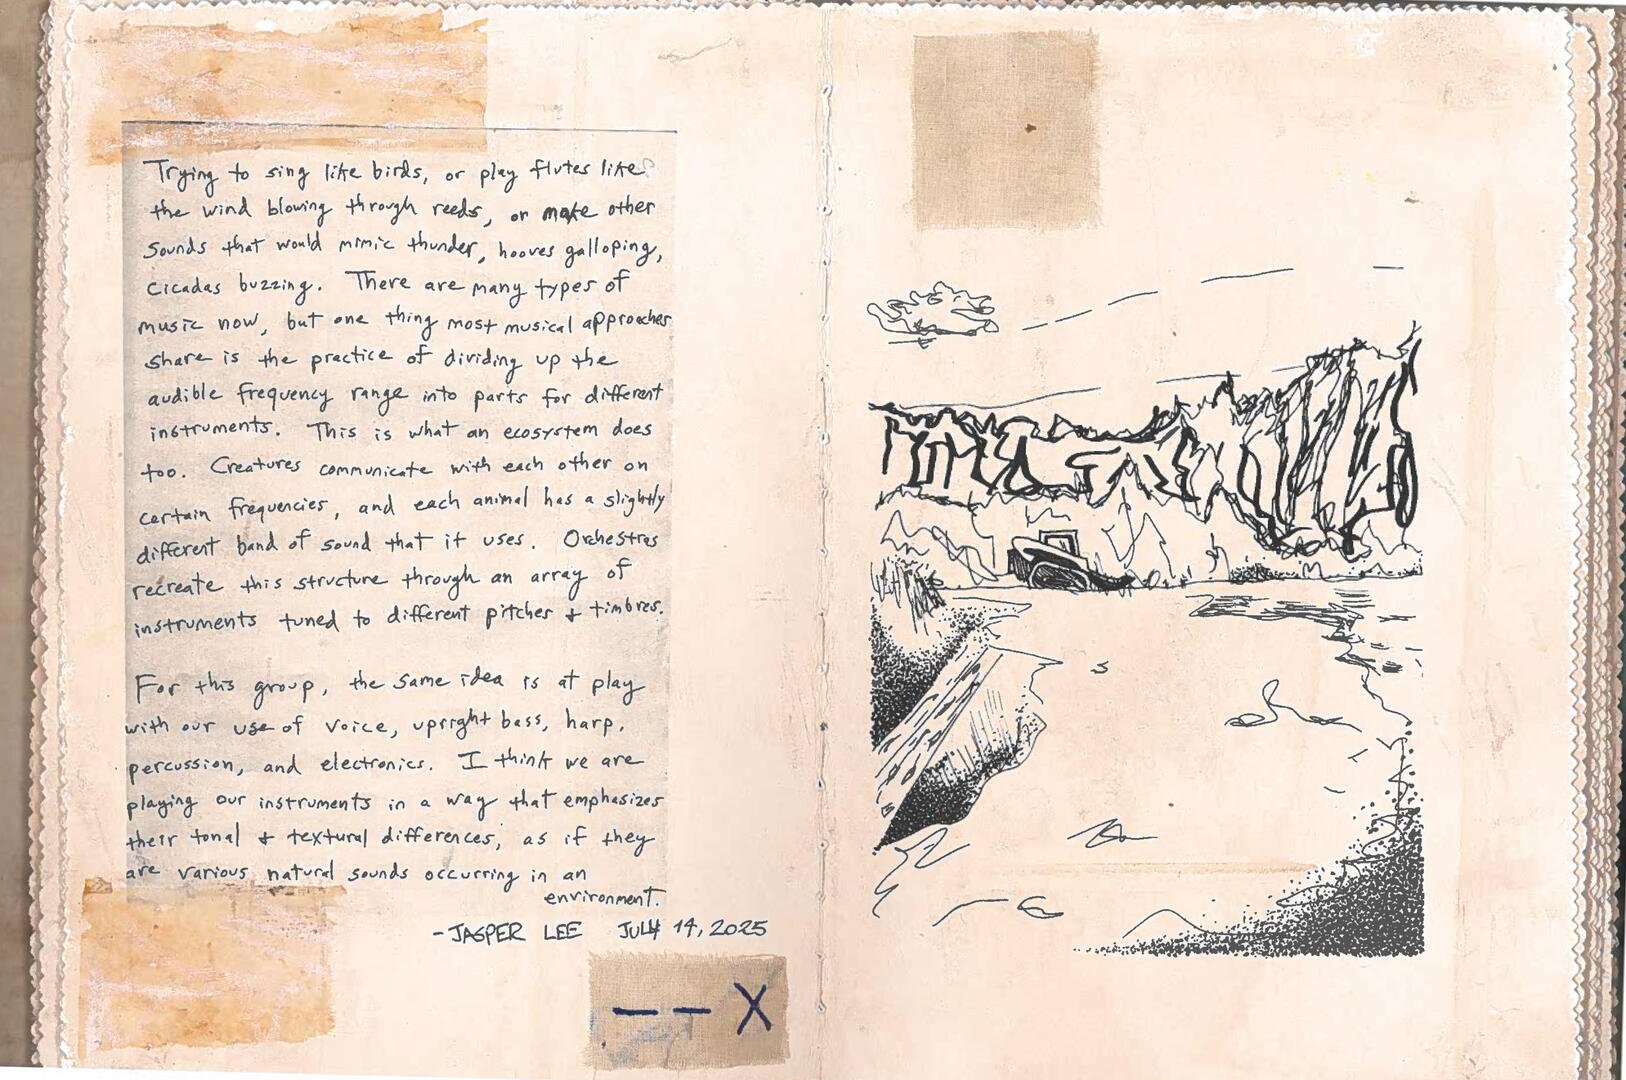 Trying to sing like birds, or play flutes like
the wind blowing through reeds, or make other
sounds that would mimic thunder, hooves galloping,
cicadas buzzing. There are many types of
music now, but one thing most musical approaches
share is the practice of dividing up the
audible frequency range into parts for different
instruments. This is what an ecosystem does
too. Creatures communicate with each other on
certain frequencies, and each animal has a slightly
different band of sound that it uses. Orchestras
recreate this structure through an array of
instruments tuned to different pitches + timbres.
For this group, the same idea is at play
with our use of voice, upright bass, harp,
percussion, and electronics. I think we are
playing our instruments in a way that emphasizes
their tonal + textural differences, as if they
are various natural sounds occurring in an
environment.
-JASPER LEE JULY 14, 2025
— — X